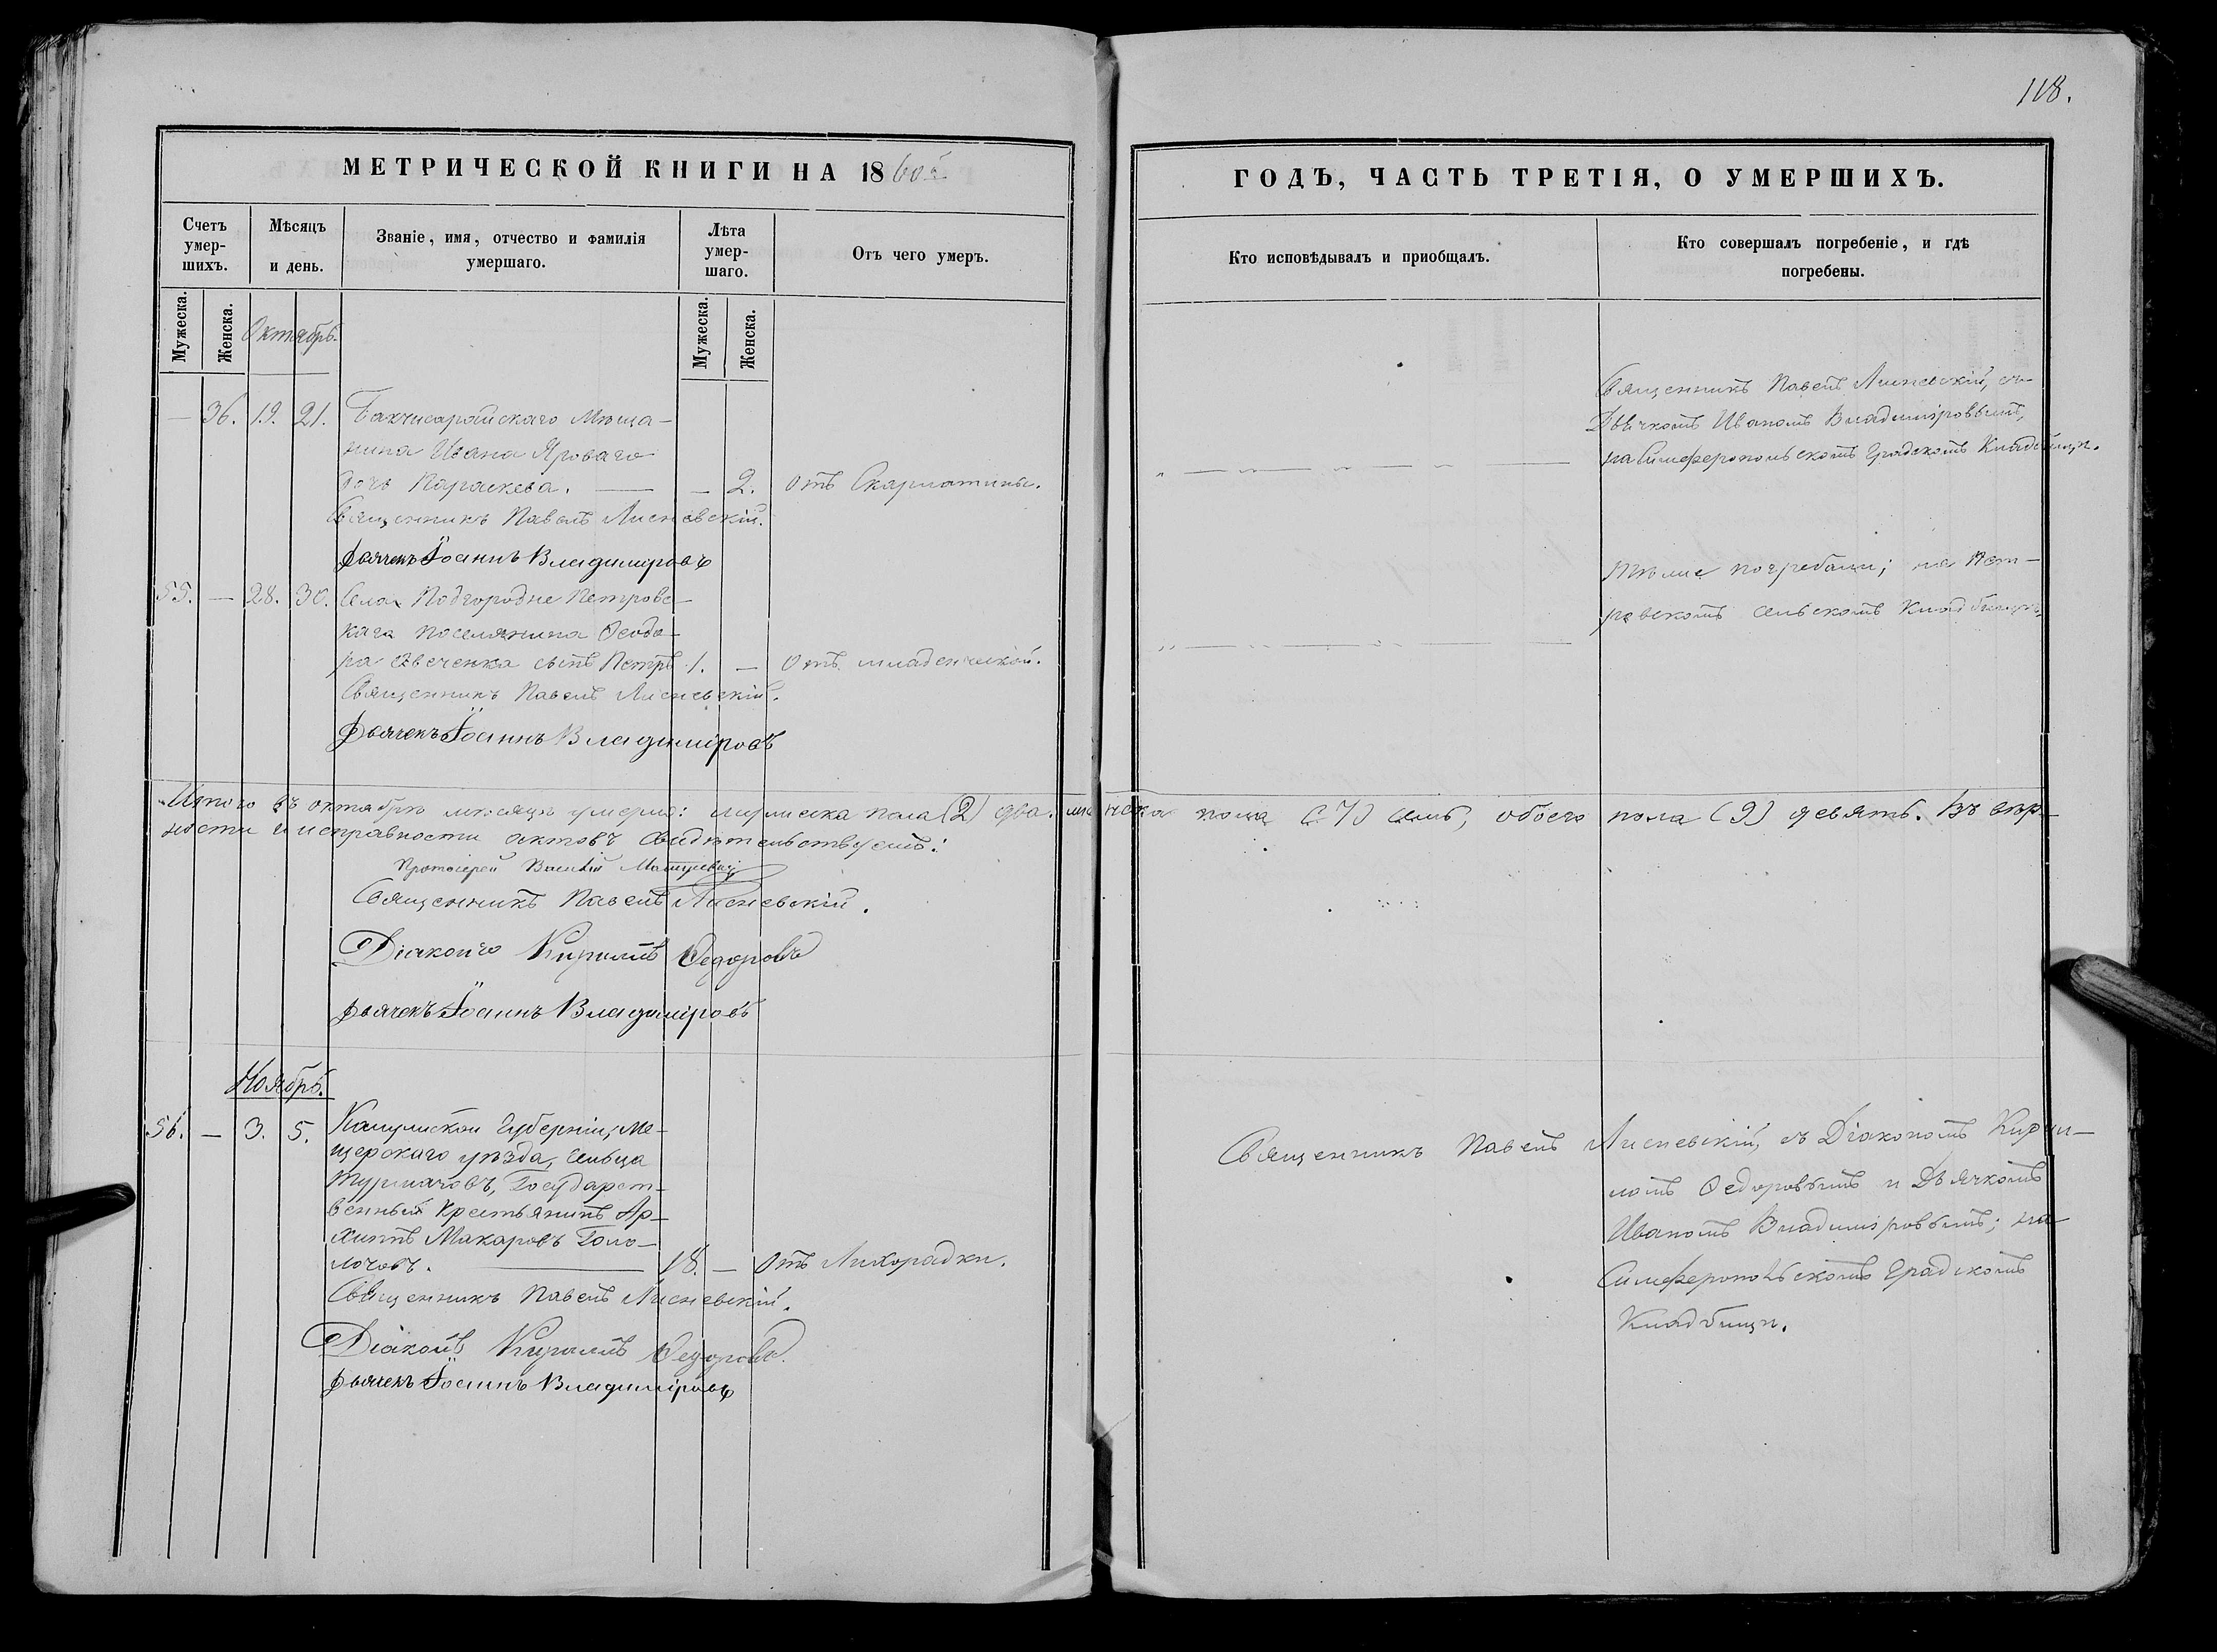 118.
МЕТРИЧЕСКОЙ КНИГИ НА 1860й
ГОДЪ, ЧАСТЬ ТРЕТІЯ, О УМЕРШИХЪ.
Счетъ умер-шихъ.
Мѣсяцъ и день.
Званіе, имя, отчество и фамилія умершаго.
Лѣта умер-шаго.
Отъ чего умеръ.
Кто исповѣдывалъ и приобщалъ.
Кто совершалъ погребеніе, и гдѣ погребены.
Мужеска.
Женска.
Октябрь.
Мужеска.
Женска.
— 36. 19. 21. Бахчисарайскаго Мѣща-
нина Ивана Яроваго
дочь Параскева. — — 2. отъ Скарлатины.
Священникъ Павелъ Лисневскій.
Дьячекъ Іоаннъ Владиміровъ
Священникъ Павелъ Лисневскій, съ
Дьячкомъ Иваномъ Владиміровымъ,
на Симферопольскомъ Градскомъ Кладбищѣ.
55. — 28. 30. Села Подгородне Петровс-
каго поселянина Ѳеодо-
ра сынъ Петръ 1. — Отъ младенческой.
Священникъ Павелъ Лисневскій.
Дьячекъ Іоаннъ Владиміровъ
Тѣже погребали; на Пет-
ровскомъ сельскомъ Кладбищѣ.
Итого въ октябрѣ мѣсяцѣ умерло: мужеска пола (2) два, женска пола (7) семь, обоего пола (9) девять. Въ вѣр-
ности и исправности актовъ свидѣтельствуемъ:
Протоіерей Василій
Священникъ Павелъ Лисневскій.
Діаконъ Кириллъ Ѳедоровъ
Дьячекъ Іоаннъ Владиміровъ
Ноябрь.
56. — 3. 5. Калужской Губерніи, Ме-
щерскаго уѣзда, Сельца
Государст-
венный Крестьянинъ Ар-
хипъ Макаровъ Голо-
мочовъ. — 18. — Отъ Лихорадки.
Священникъ Павелъ Лисневскій.
Діаконъ Кириллъ Ѳедоровъ.
Дьячекъ Іоаннъ Владиміровъ
Священникъ Павелъ Лисневскій, съ Діакономъ Кирил-
ломъ Ѳедоровымъ и Дьячкомъ
Иваномъ Владиміровымъ; на
Симферопольскомъ Градскомъ
Кладбищѣ.